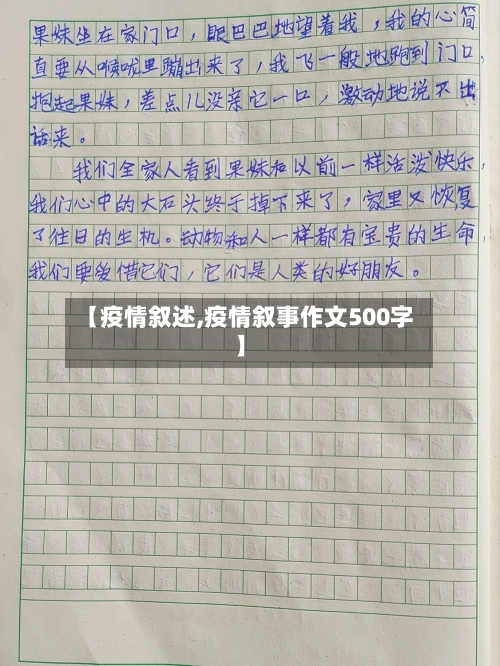 果妹坐在家门口，眼巴巴地望着我，我的心简
直要从喉咙里蹦出来了，我飞一般地跑到门口，
抱起果妹，差点儿没亲它一口，激动地说不出
话来。
我们全家人看到果妹和以前一样活泼快乐，
我们心中的大石头终于掉下来了，家里又恢复
了往日的生机。动物和人一样都有宝贵的生命，
我们要爱惜它们，它们是人类的好朋友。
【疫情叙述,疫情叙事作文500字
】